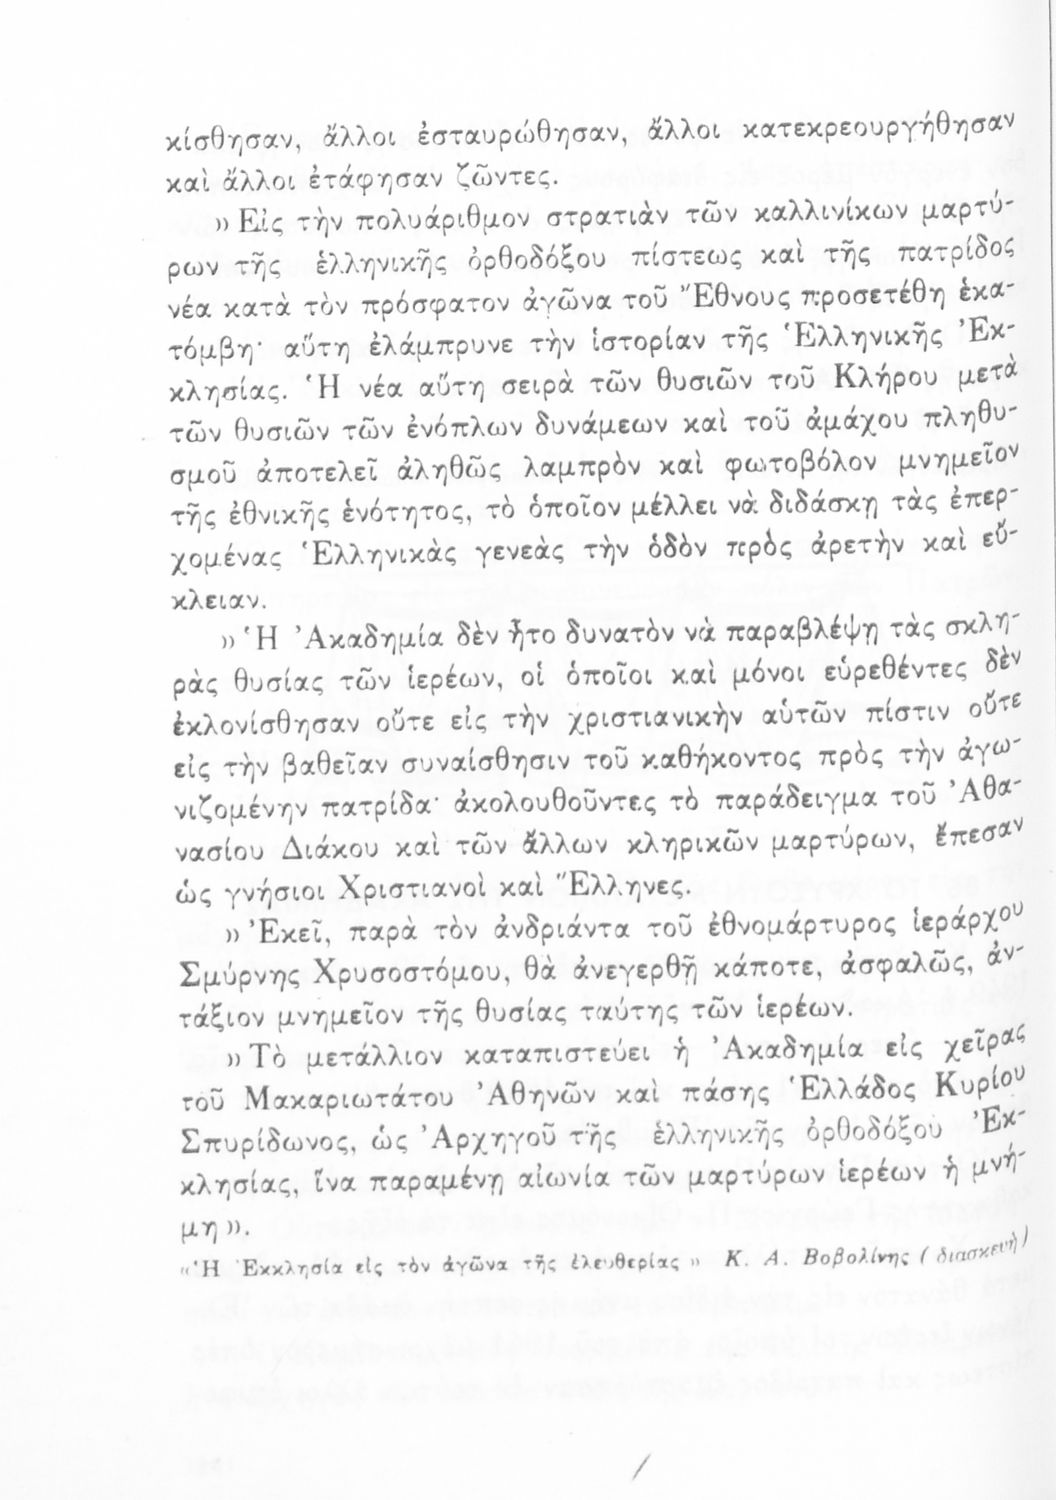 κίσθησαν, ἄλλοι ἐσταυρώθησαν, ἄλλοι κατεκρεουργήθησαν
καὶ ἄλλοι ἐτάφησαν ζῶντες.
» Εἰς τὴν πολυάριθμον στρατιὰν τῶν καλλινίκων μαρτύ-
ρων τῆς ἑλληνικῆς ὀρθοδόξου πίστεως καὶ τῆς πατρίδος
νέα κατὰ τὸν πρόσφατον ἀγῶνα τοῦ Ἔθνους προσετέθη ἑκα-
τόμβη· αὕτη ἐλάμπρυνε τὴν ἱστορίαν τῆς Ἑλληνικῆς Ἐκ-
κλησίας. Ἡ νέα αὕτη σειρὰ τῶν θυσιῶν τοῦ Κλήρου μετὰ
τῶν θυσιῶν τῶν ἐνόπλων δυνάμεων καὶ τοῦ ἀμάχου πληθυ-
σμοῦ ἀποτελεῖ ἀληθῶς λαμπρὸν καὶ φωτοβόλον μνημεῖον
τῆς ἐθνικῆς ἑνότητος, τὸ ὁποῖον μέλλει νὰ διδάσκῃ τὰς ἐπερ-
χομένας Ἑλληνικὰς γενεὰς τὴν ὁδὸν πρὸς ἀρετὴν καὶ εὔ-
κλειαν.
» Ἡ Ἀκαδημία δὲν ἦτο δυνατὸν νὰ παραβλέψῃ τὰς σκλη-
ρὰς θυσίας τῶν ἱερέων, οἱ ὁποῖοι καὶ μόνοι εὑρεθέντες δὲν
ἐκλονίσθησαν οὔτε εἰς τὴν χριστιανικὴν αὑτῶν πίστιν οὔτε
εἰς τὴν βαθεῖαν συναίσθησιν τοῦ καθήκοντος πρὸς τὴν ἀγω-
νιζομένην πατρίδα· ἀκολουθοῦντες τὸ παράδειγμα τοῦ Ἀθα-
νασίου Διάκου καὶ τῶν ἄλλων κληρικῶν μαρτύρων, ἔπεσαν
ὡς γνήσιοι Χριστιανοὶ καὶ Ἕλληνες.
» Ἐκεῖ, παρὰ τὸν ἀνδριάντα τοῦ ἐθνομάρτυρος ἱεράρχου
Σμύρνης Χρυσοστόμου, θὰ ἀνεγερθῇ κάποτε, ἀσφαλῶς, ἀν-
τάξιον μνημεῖον τῆς θυσίας ταύτης τῶν ἱερέων.
» Τὸ μετάλλιον καταπιστεύει ἡ Ἀκαδημία εἰς χεῖρας
τοῦ Μακαριωτάτου Ἀθηνῶν καὶ πάσης Ἑλλάδος Κυρίου
Σπυρίδωνος, ὡς Ἀρχηγοῦ τῆς ἑλληνικῆς ὀρθοδόξου Ἐκ-
κλησίας, ἵνα παραμένῃ αἰωνία τῶν μαρτύρων ἱερέων ἡ μνή-
μη ».
« Ἡ Ἐκκλησία εἰς τὸν ἀγῶνα τῆς ἐλευθερίας » Κ. Α. Βοβολίνης ( διασκευὴ )